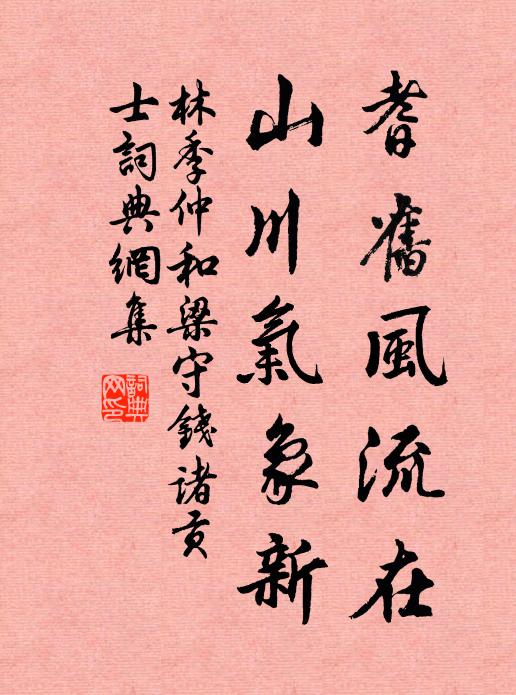 耆舊風流在
山川氣象新
林季仲和梁守餞諸貢
士詞典網集
詞典網印